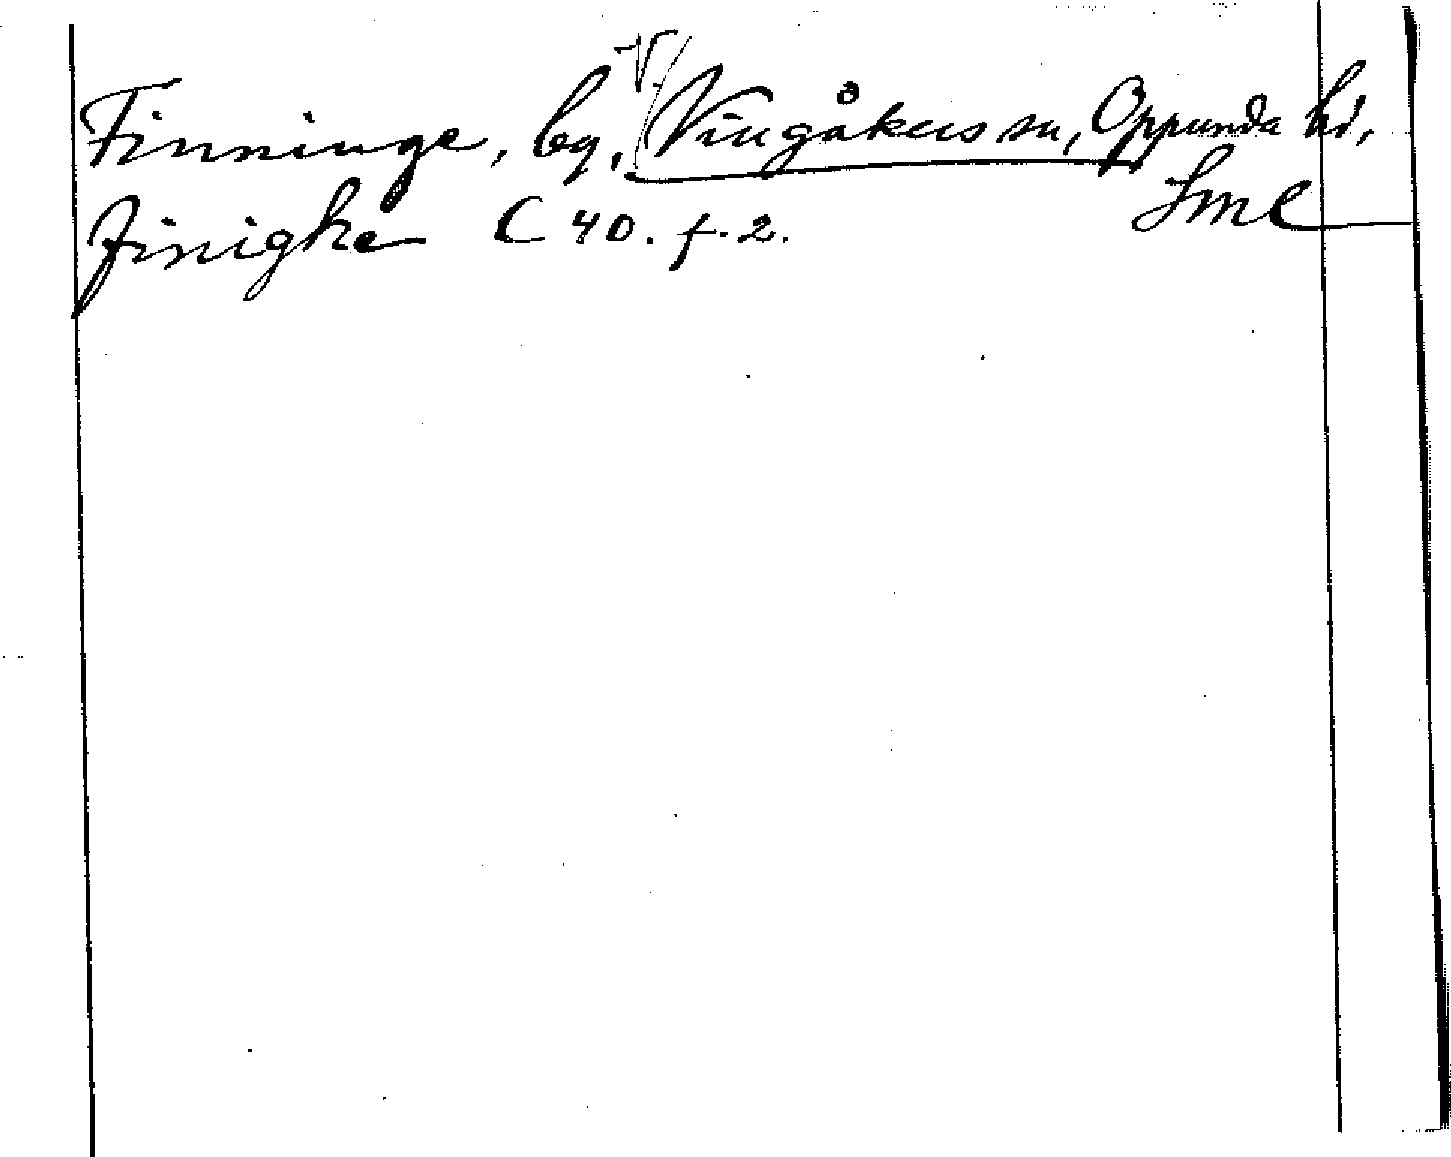 Finninge, by, V. Vingåkers sn, Oppunda hd,
Sml
Finighe C 40. f. 2.